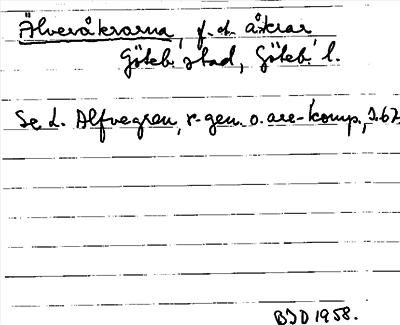 Älveråkrarna, f.d. åkrar
Göteb. stad, Göteb. l.
Se L. Alfvegren, r-gen. o. are-komp., s. 62
BJD 1958.